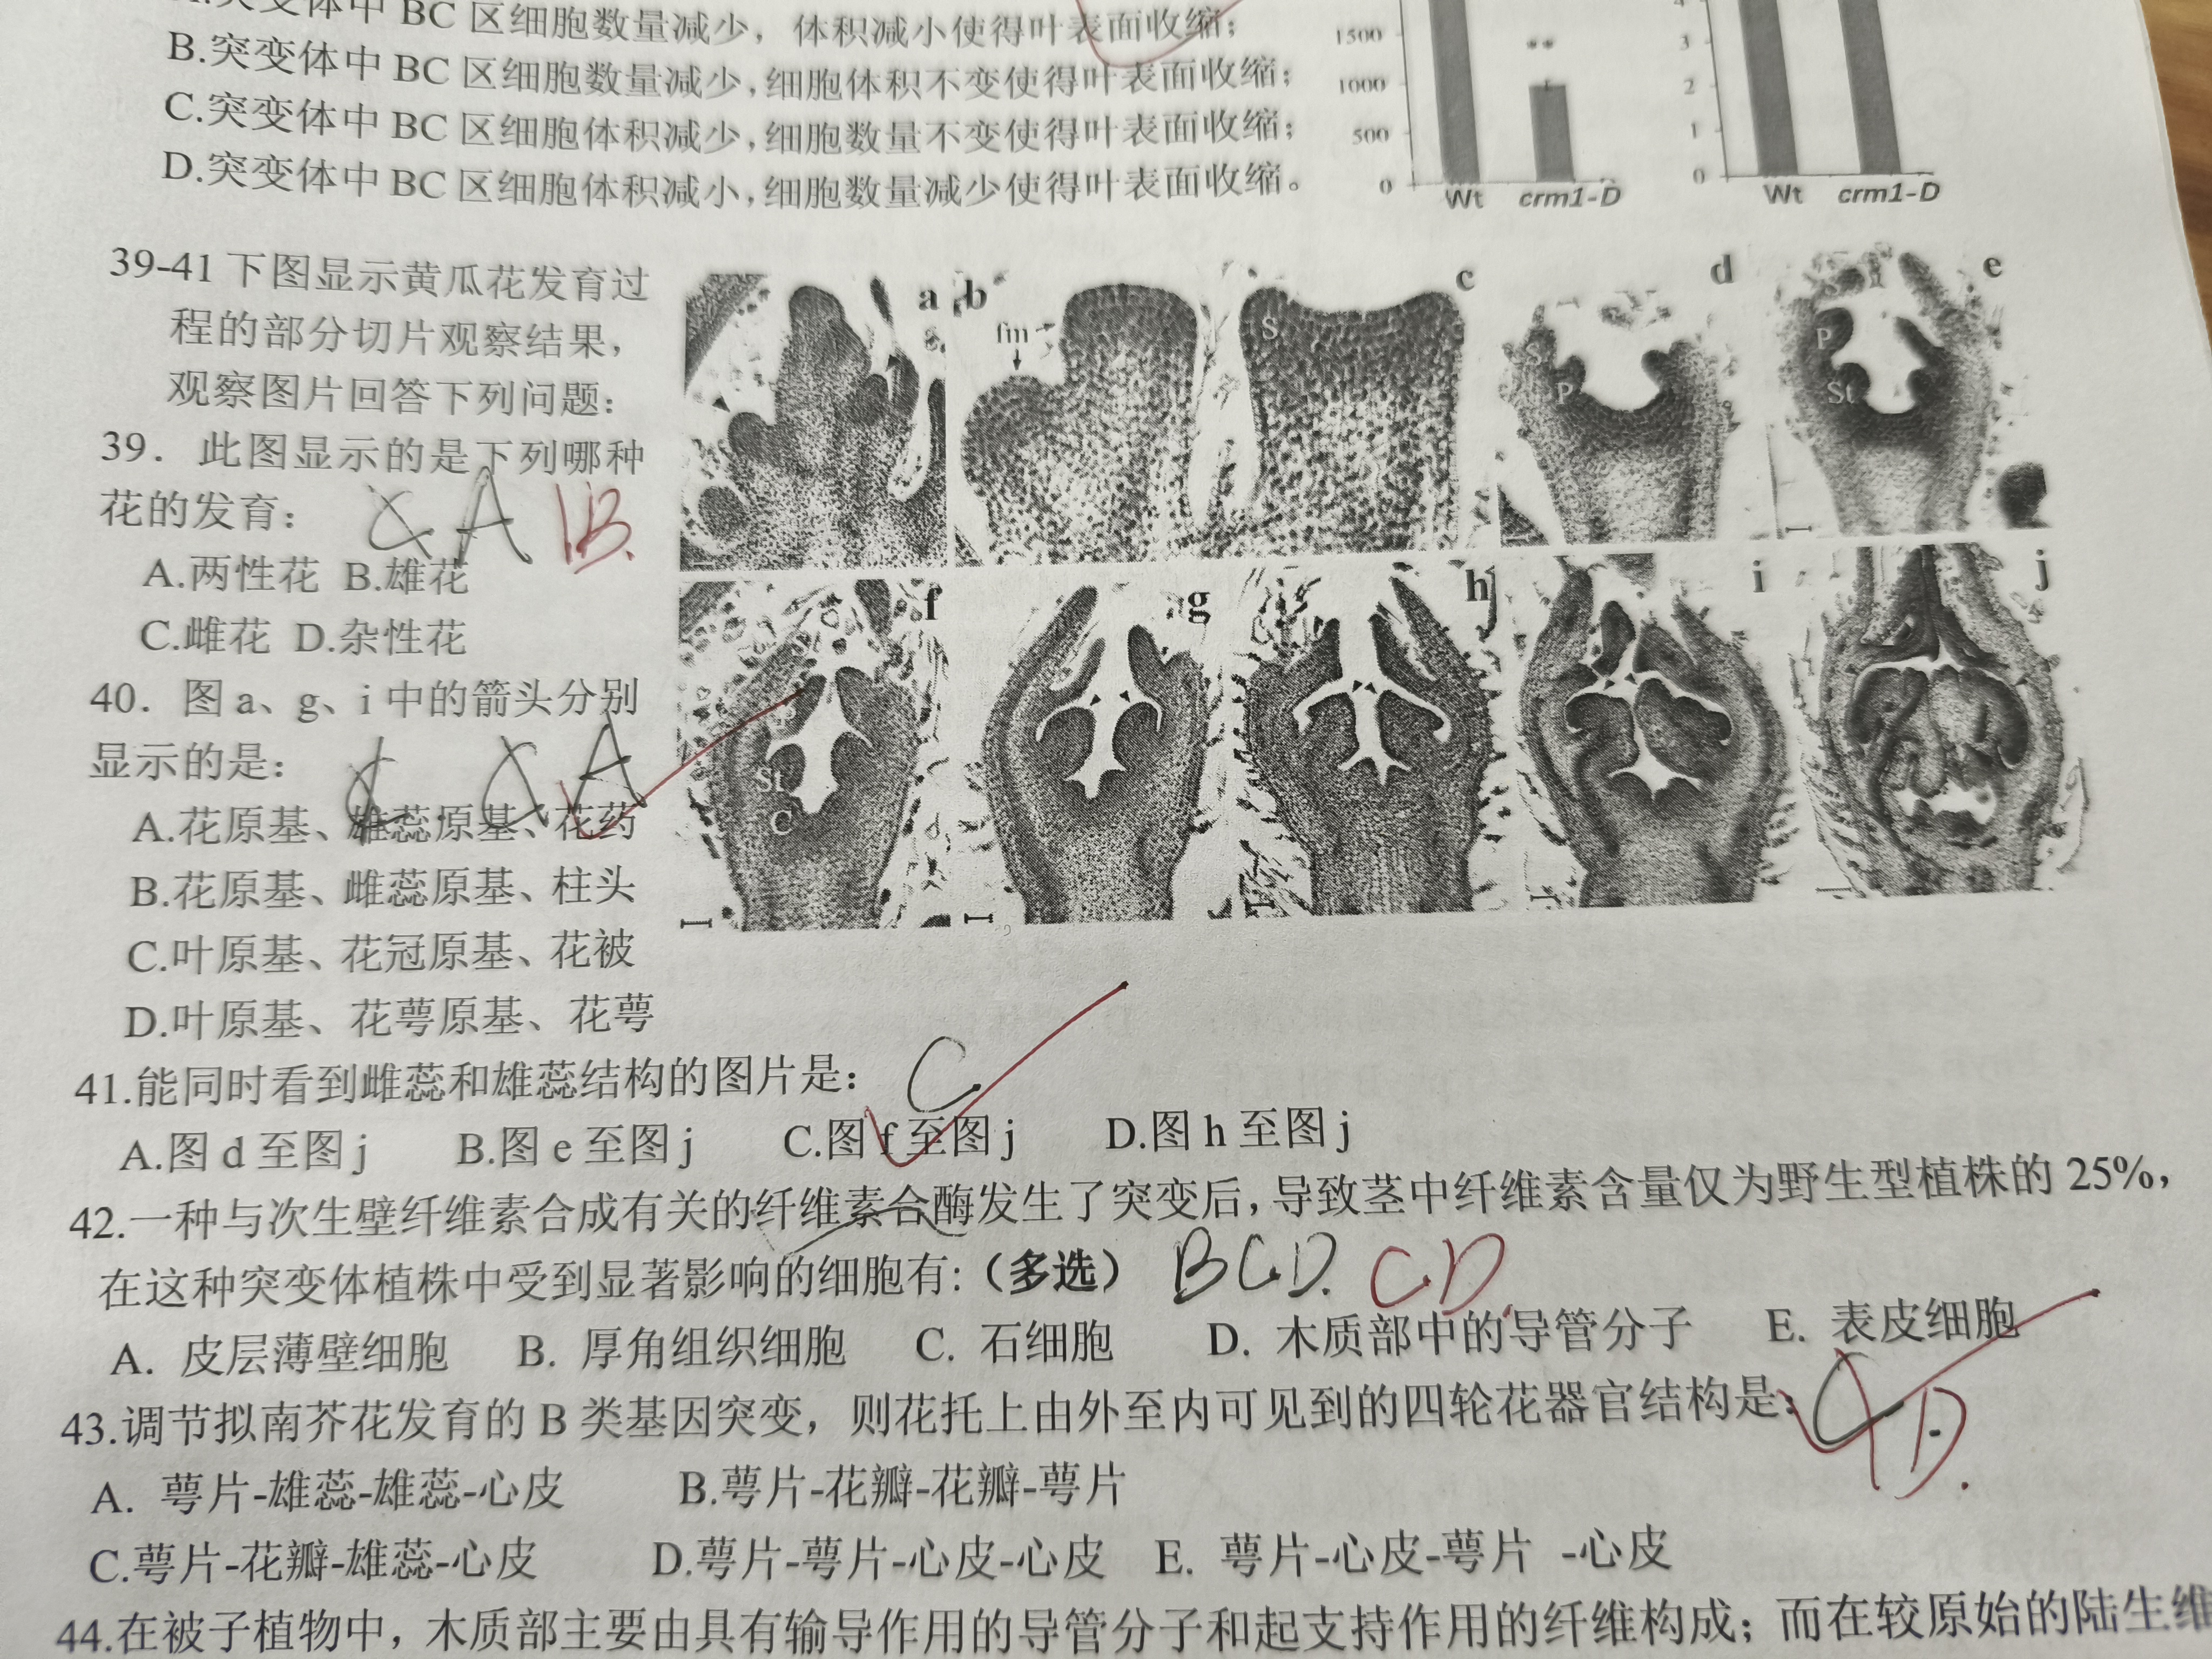 突变体中 BC 区细胞数量减少，体积减小使得叶表面收缩；
B.突变体中 BC 区细胞数量减少,细胞体积不变使得叶表面收缩；
C.突变体中 BC 区细胞体积减少,细胞数量不变使得叶表面收缩；
D.突变体中 BC 区细胞体积减小,细胞数量减少使得叶表面收缩。
1500
**
1000
500
0
Wt crm1-D
4
3
2
1
0
Wt crm1-D
39-41 下图显示黄瓜花发育过
程的部分切片观察结果，
观察图片回答下列问题：
39．此图显示的是下列哪种
花的发育： A B.
A.两性花 B.雄花
C.雌花 D.杂性花
40．图 a、g、i 中的箭头分别
显示的是： A
A.花原基、雄蕊原基、花药
B.花原基、雌蕊原基、柱头
C.叶原基、花冠原基、花被
D.叶原基、花萼原基、花萼
a b c d e
fm S S P P St
f g h i j
St C
41.能同时看到雌蕊和雄蕊结构的图片是： C.
A.图 d 至图 j B.图 e 至图 j C.图 f 至图 j D.图 h 至图 j
42.一种与次生壁纤维素合成有关的纤维素合酶发生了突变后，导致茎中纤维素含量仅为野生型植株的 25%，
在这种突变体植株中受到显著影响的细胞有：（多选） BCD. CD.
A. 皮层薄壁细胞 B. 厚角组织细胞 C. 石细胞 D. 木质部中的导管分子 E. 表皮细胞
43.调节拟南芥花发育的 B 类基因突变，则花托上由外至内可见到的四轮花器官结构是： D.
A. 萼片-雄蕊-雄蕊-心皮 B.萼片-花瓣-花瓣-萼片
C.萼片-花瓣-雄蕊-心皮 D.萼片-萼片-心皮-心皮 E. 萼片-心皮-萼片 -心皮
44.在被子植物中，木质部主要由具有输导作用的导管分子和起支持作用的纤维构成；而在较原始的陆生维